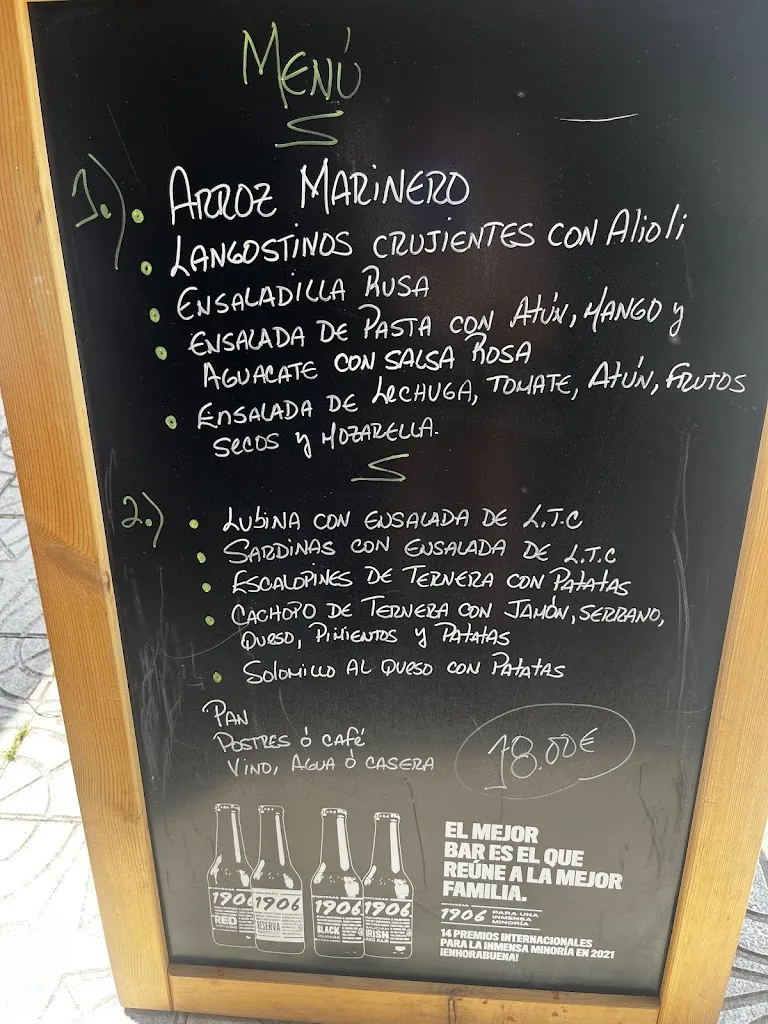 MENÚ
1.) • ARROZ MARINERO
• LANGOSTINOS CRUJIENTES CON Alioli
• ENSALADILLA RUSA
• ENSALADA DE PASTA CON ATÚN, MANGO y
AGUACATE CON SALSA ROSA
• ENSALADA DE LECHUGA, TOMATE, ATÚN, FRUTOS
SECOS y MOZARELLA.
2.) • LUBINA CON ENSALADA DE L.T.C
• SARDINAS CON ENSALADA DE L.T.C
• ESCALOPINES DE TERNERA CON PATATAS
• CACHOPO DE TERNERA CON JAMÓN, SERRANO,
QUESO, PIMIENTOS y PATATAS
• SOLOMILLO AL QUESO CON PATATAS
PAN
POSTRES Ó CAFÉ
VINO, AGUA Ó CASERA
18.00€
1906 1906 1906 1906
RED RESERVA BLACK IRISH
RED ALE
EL MEJOR
BAR ES EL QUE
REÚNE A LA MEJOR
FAMILIA.
1906 PARA UNA
INMENSA
MINORÍA
14 PREMIOS INTERNACIONALES
PARA LA INMENSA MINORÍA EN 2021
¡ENHORABUENA!